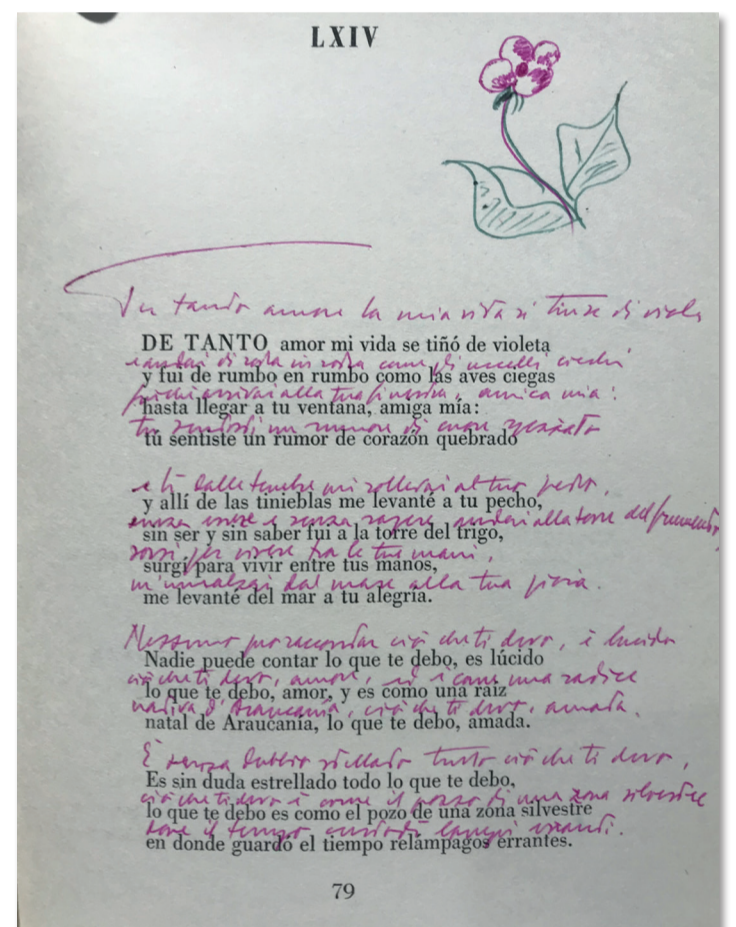 LXIV
tanto amore la mia vita si tinse di viola
DE TANTO amor mi vida se tiñó de violeta
e andai di rotta in rotta come gli uccelli ciechi
y fui de rumbo en rumbo como las aves ciegas
arrivai alla tua finestra, amica mia:
hasta llegar a tu ventana, amiga mía:
tu sentisti un rumore di cuore
tú sentiste un rumor de corazón quebrado
e lì dalle tenebre mi sollevai al tuo petto,
y allí de las tinieblas me levanté a tu pecho,
senza essere e senza sapere andai alla torre del frumento,
sin ser y sin saber fui a la torre del trigo,
sorsi per vivere tra le tue mani,
surgí para vivir entre tus manos,
m'innalzai dal mare alla tua gioia.
me levanté del mar a tu alegría.
Nessuno può raccontar ciò che ti devo, è lucido
Nadie puede contar lo que te debo, es lúcido
ciò che ti devo, amore, ed è come una radice
lo que te debo, amor, y es como una raíz
nativa d'Araucanía, ciò che ti devo, amata.
natal de Araucanía, lo que te debo, amada.
È senza dubbio stellato tutto ciò che ti devo,
Es sin duda estrellado todo lo que te debo,
ciò che ti devo è come il pozzo di una zona silvestre
lo que te debo es como el pozo de una zona silvestre
dove il tempo lampi erranti.
en donde guardó el tiempo relámpagos errantes.
79